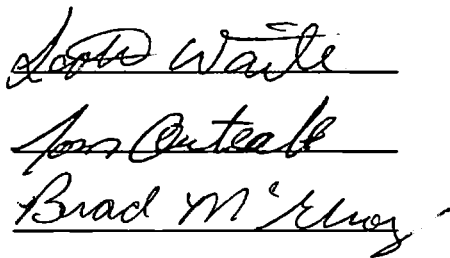 Scott Waite
Tom Outcalt
Brad McElroy